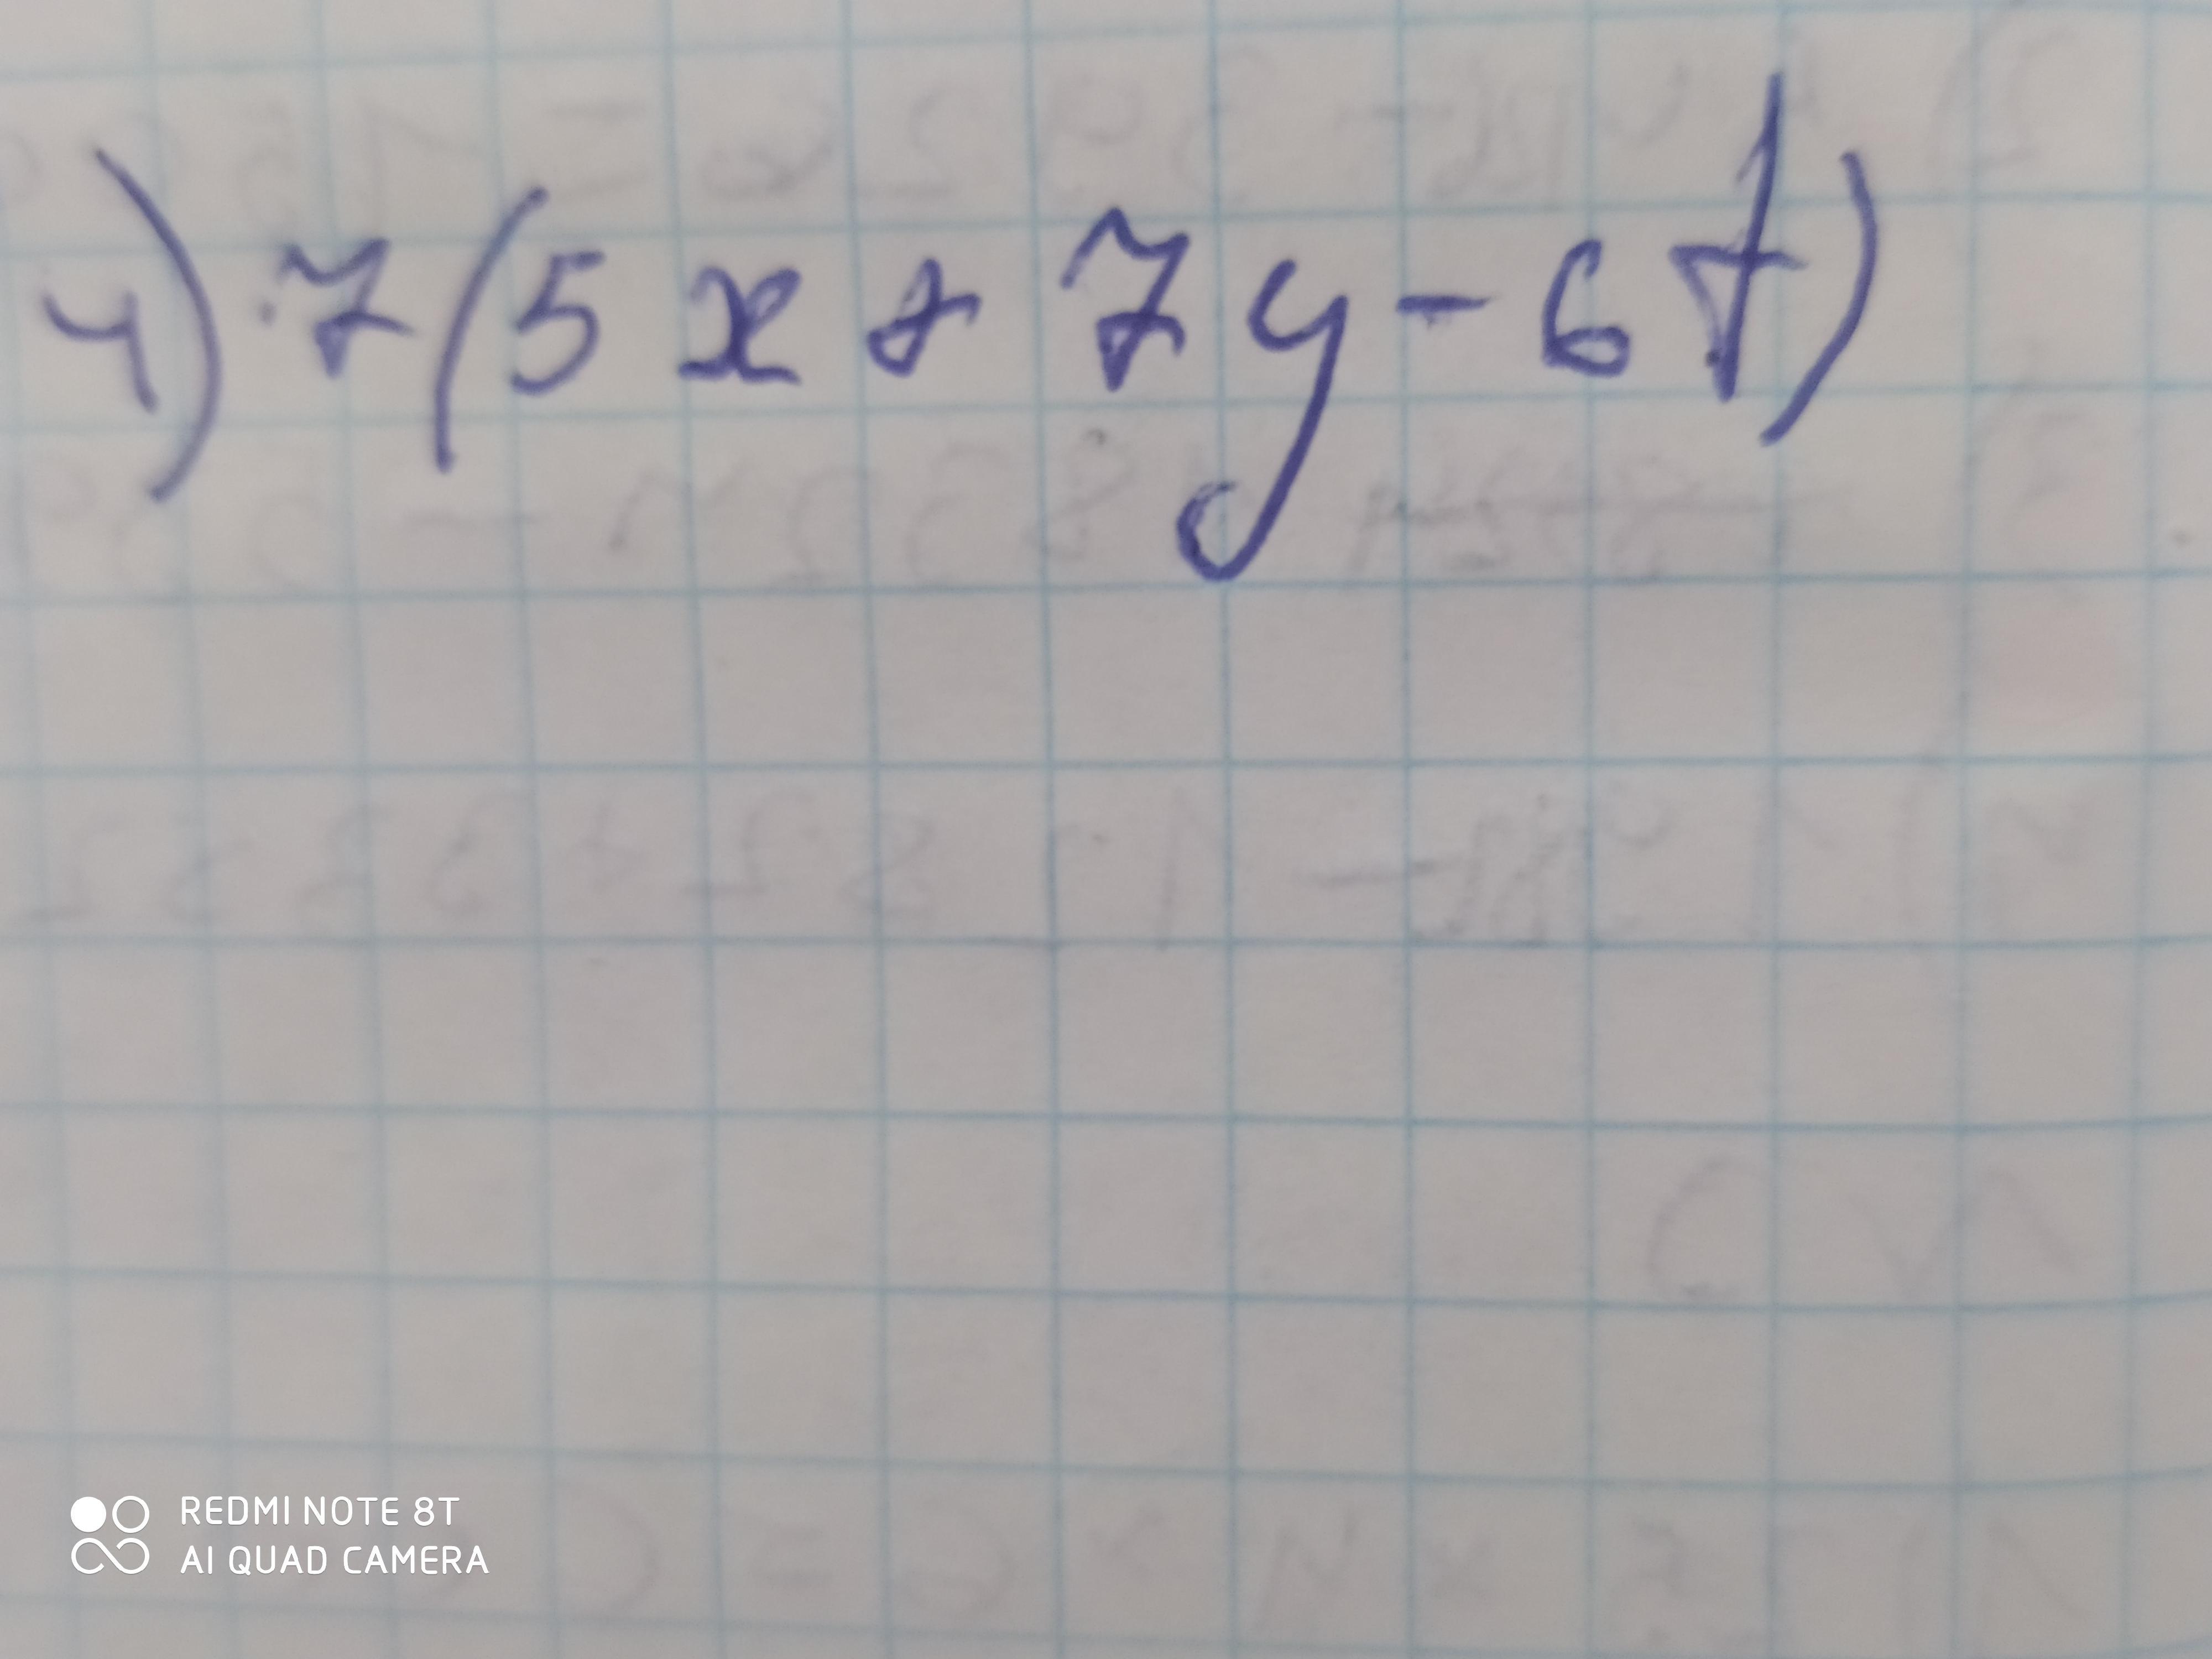 4) 7(5x+7y-6t)
REDMI NOTE 8T
AI QUAD CAMERA